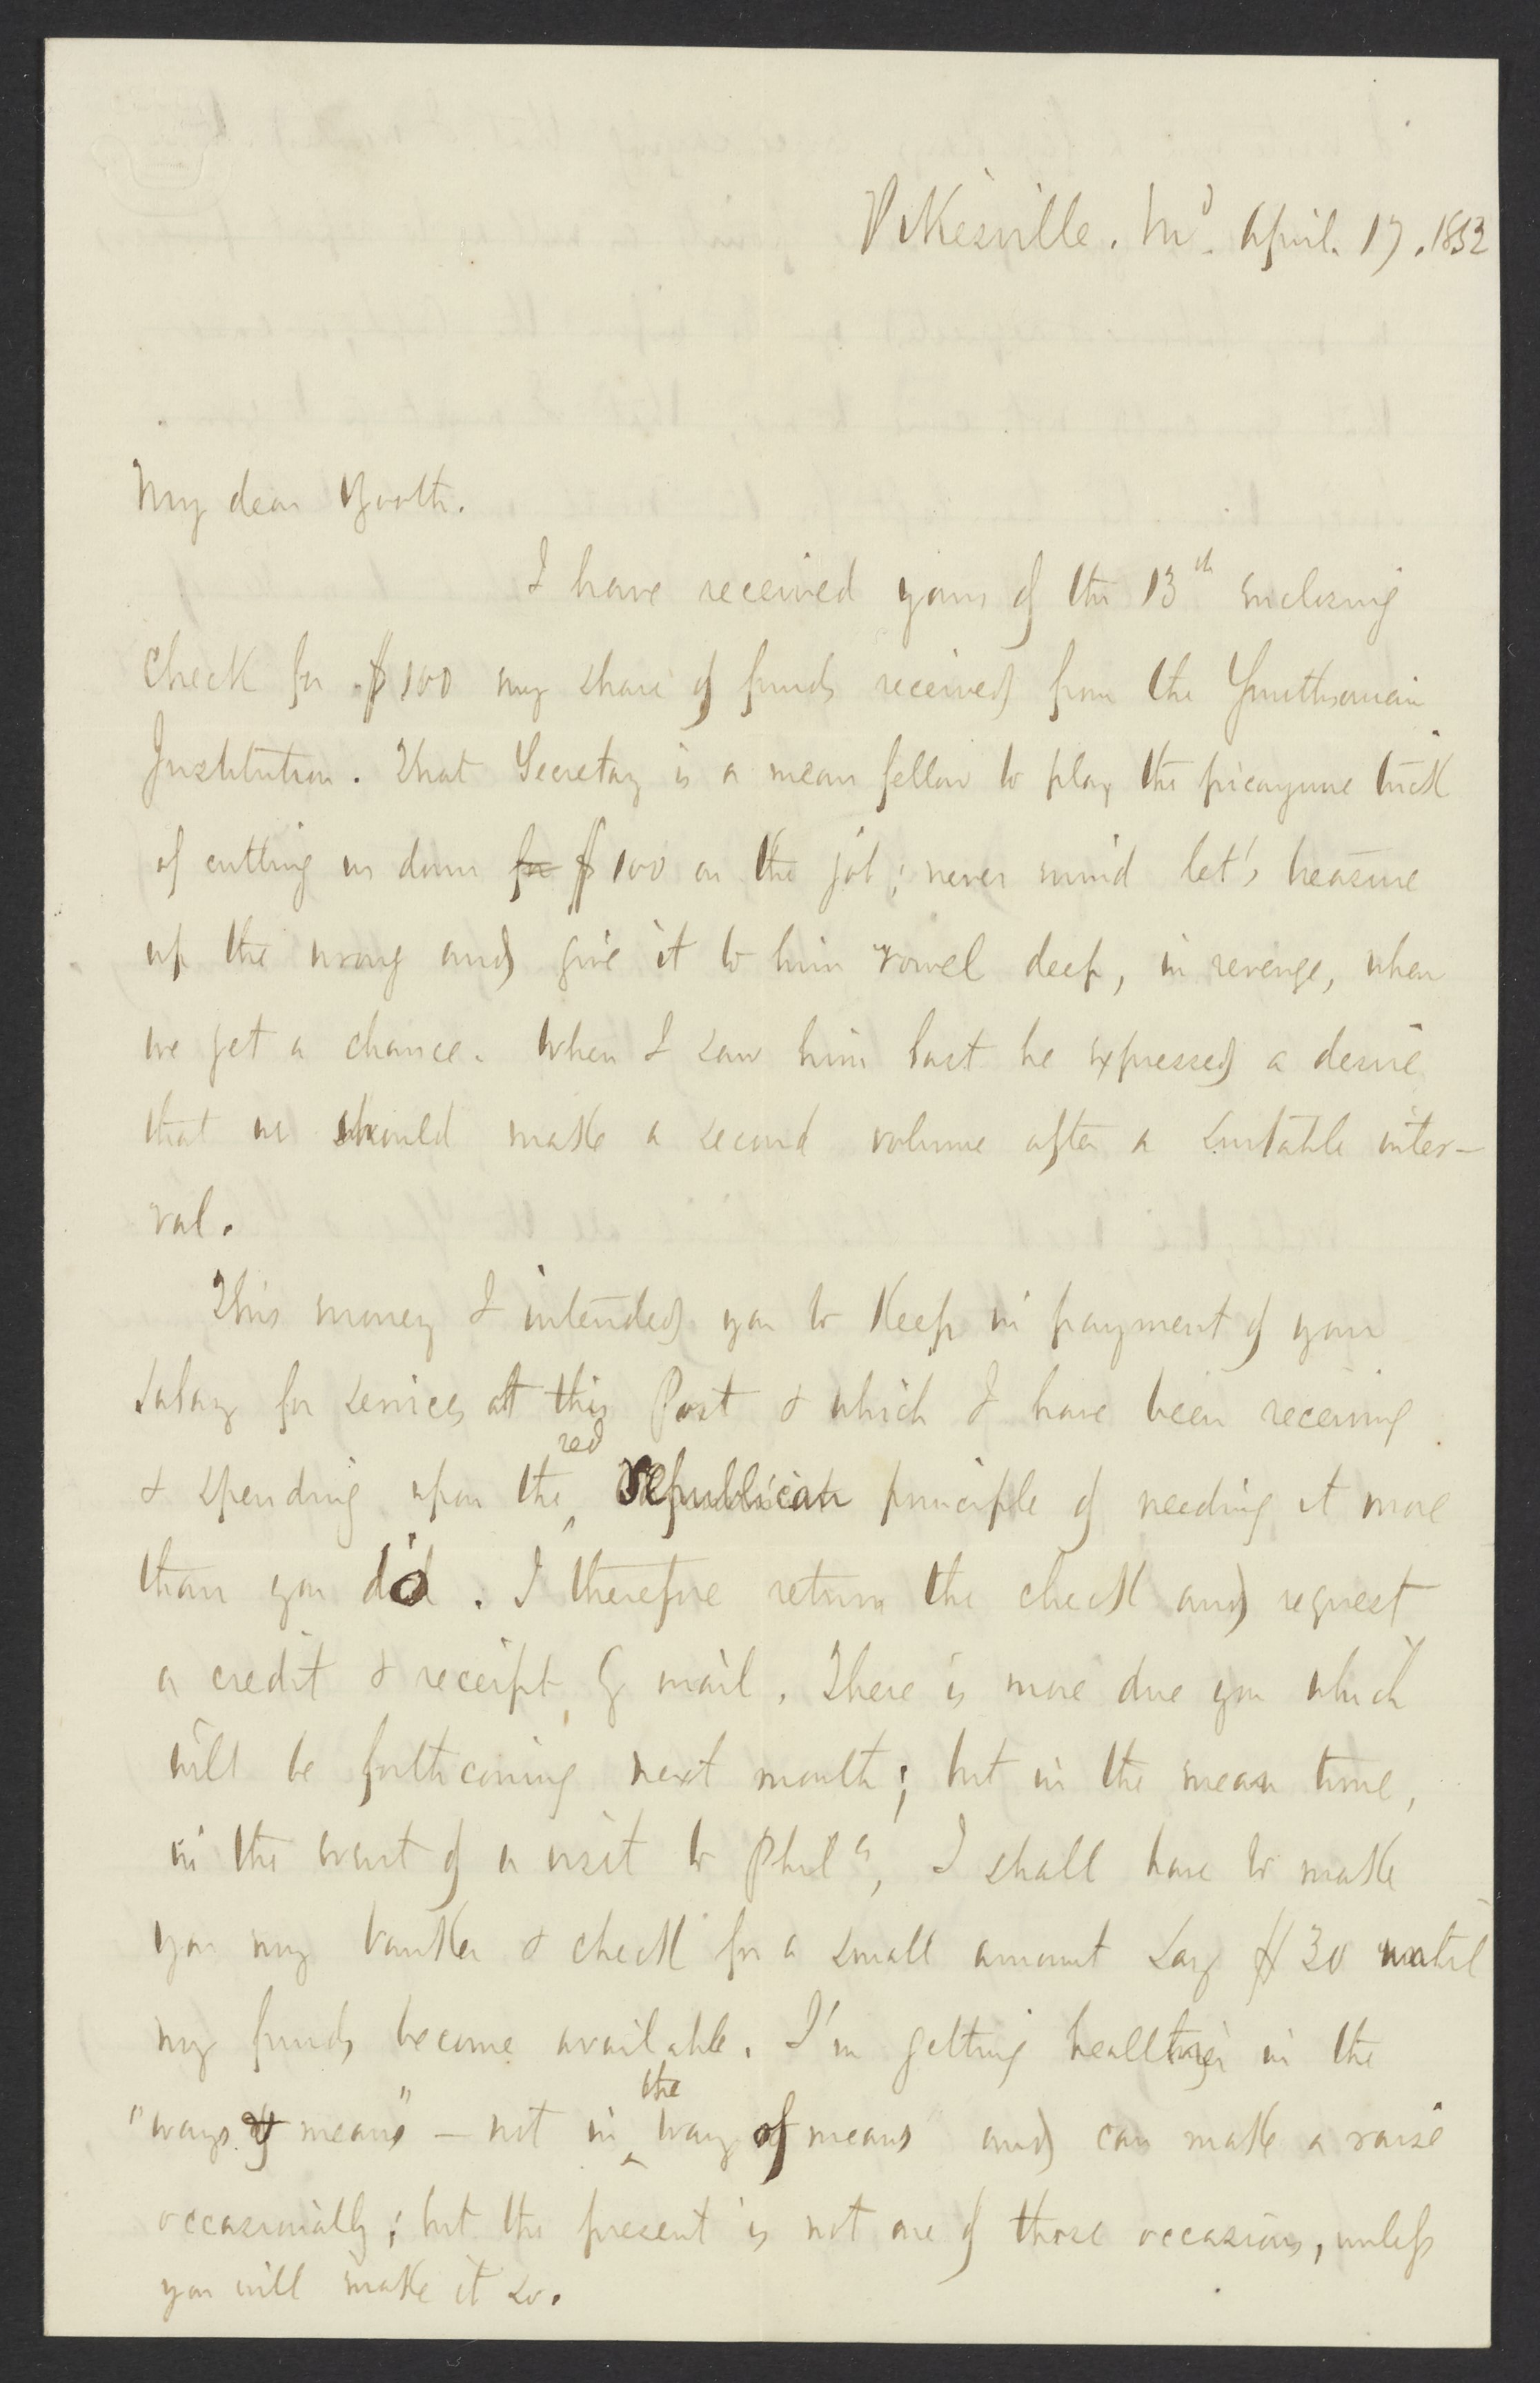 Pikesville. Md. April. 17. 1852
My dear Booth.
I have received yours of the 13th enclosing
check for $100 my share of funds received from the Smithsonian
Institution. That Secretary is a mean fellow to play the picayune trick
of cutting us down for $100 on the job; never mind let's treasure
up the wrong and give it to him rowel deep, in revenge, when
we get a chance. When I saw him last he expressed a desire
that we should make a second volume after a suitable inter-
val.
This money I intended you to keep in payment of your
salary for services at this Post & which I have been receiving
& spending upon the red republican principle of needing it more
than you did. I therefore return the check and request
a credit & receipt by mail. There is more due you which
will be forthcoming next month; but in the mean time,
in the event of a visit to Phila, I shall have to make
you my banker & check for a small amount say $30 until
my funds become available. I'm getting healthier in the
"ways & means" – not in the way of means and can make a raise
occasionally; but the present is not one of those occasions, unless
you will make it so.